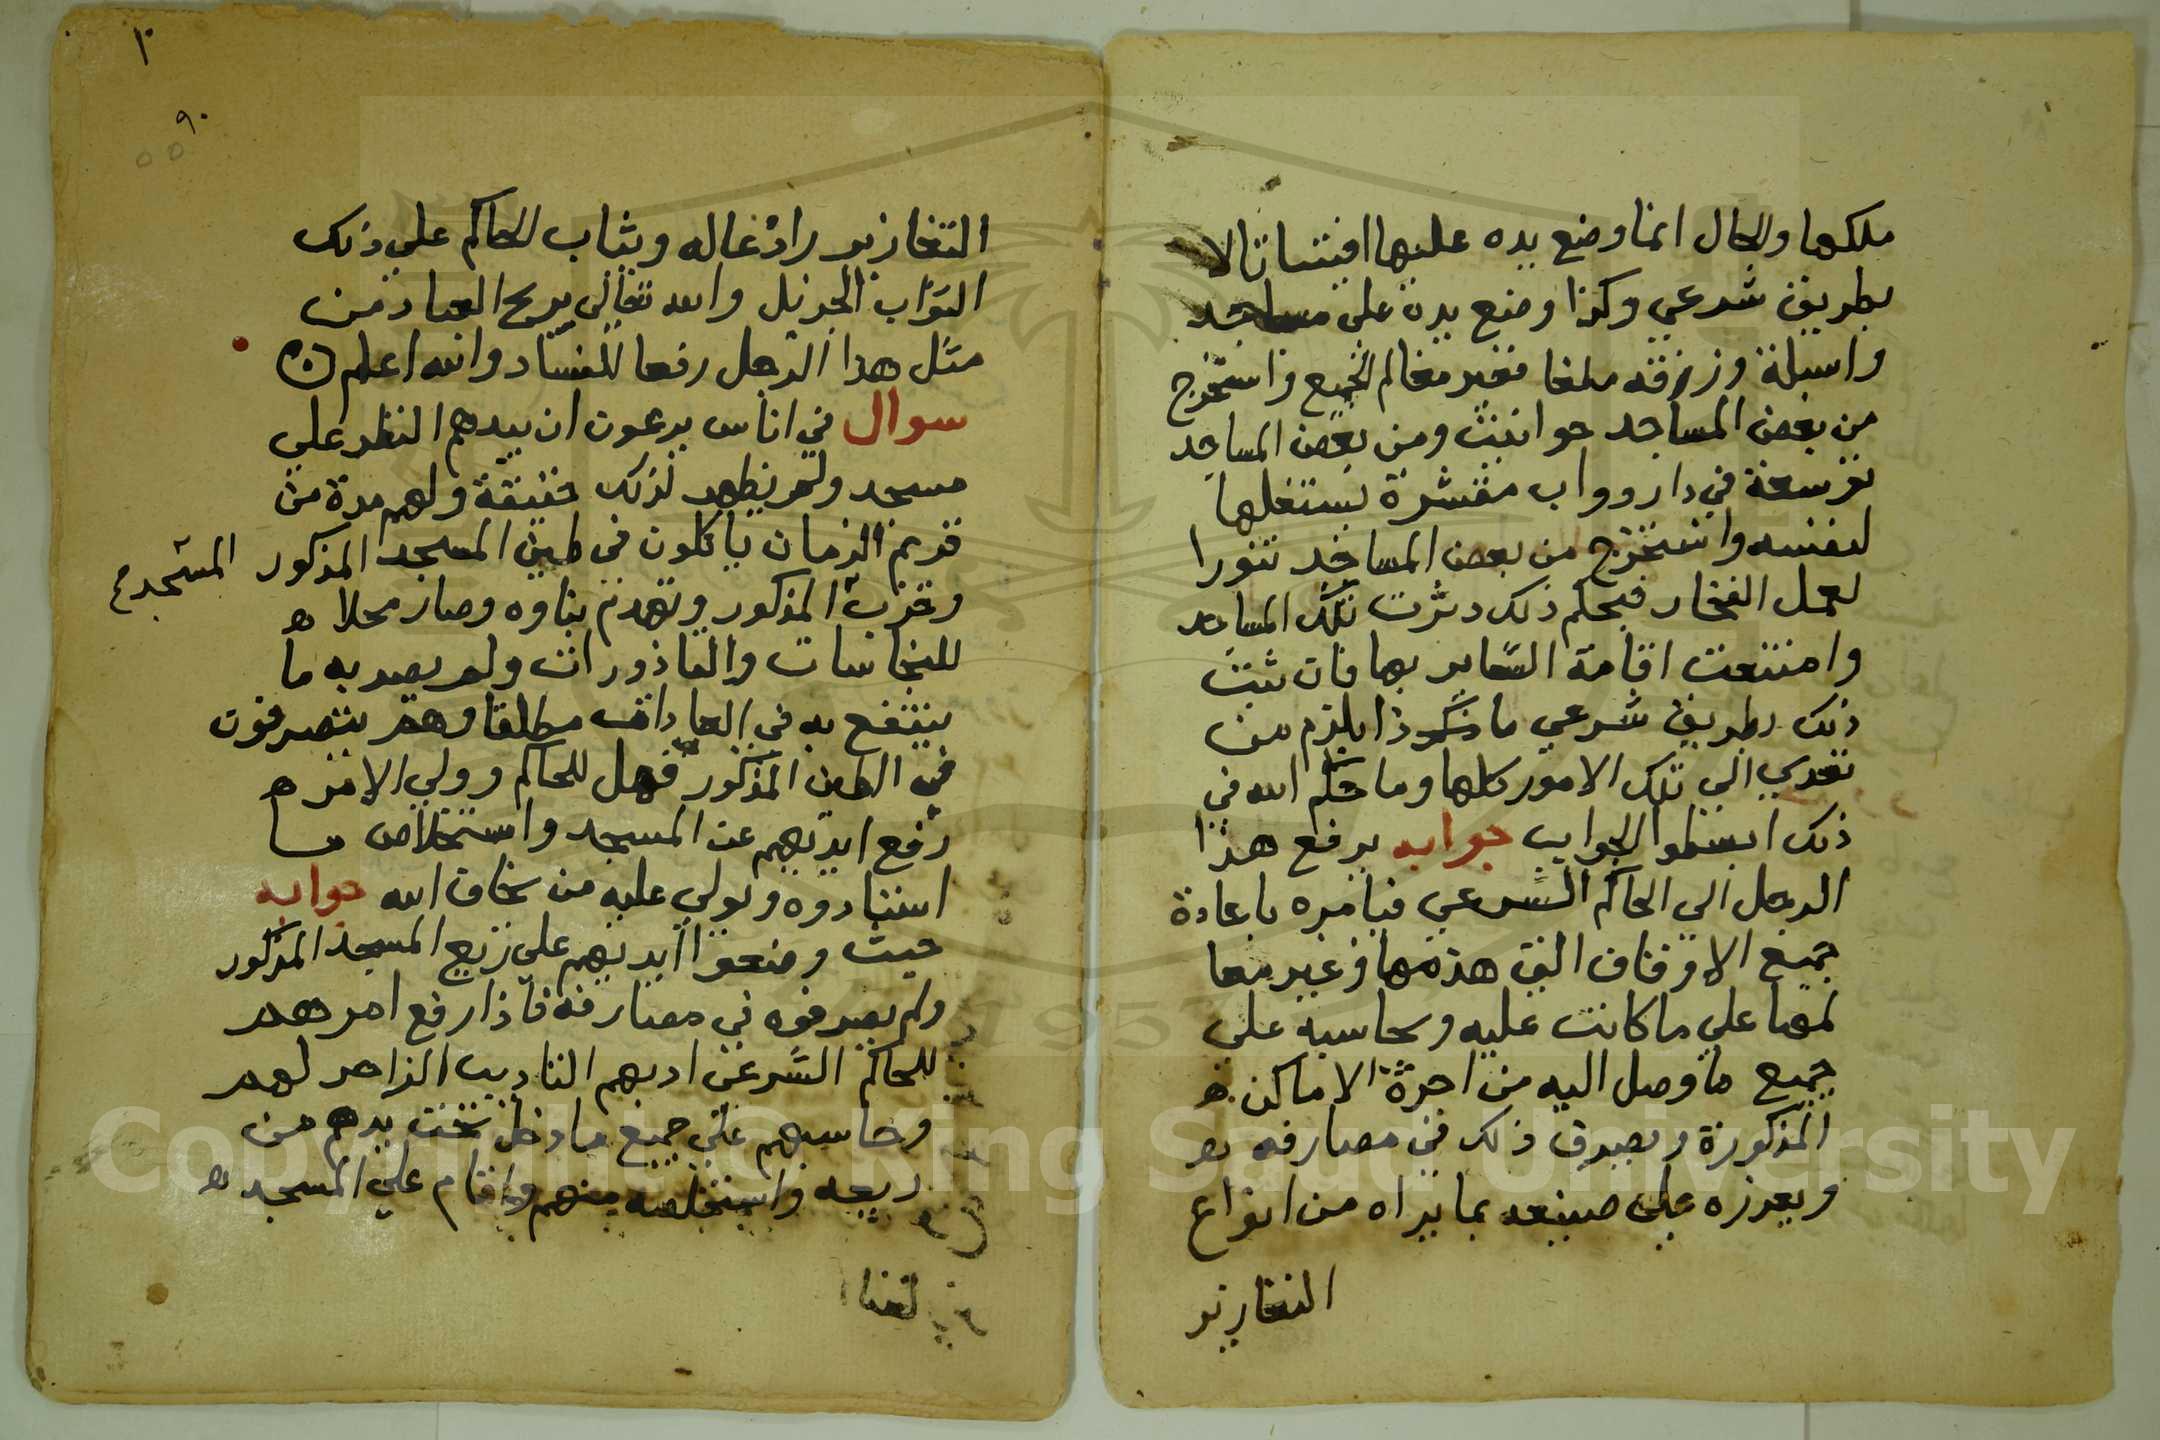 ملكها والحال انما وضع يده عليها افتياتا لا
بطريق شرعي وكذا وضع يده على مساجد
واسبلة وزرقه معالم الجميع واستخرج
من بعض المساجد حوانيت ومن بعض المساجد
توسعة في دار ودواب مقشرة يستغلها
لنفسه واستخرج من بعض المساجد تنورا
لعمل الفخار فبحكم ذلك دثرت تلك المساجد
وامتنعت اقامة الشعاير بها فان ثبت
ذلك بطريق شرعي ماذا يلزم من
تعدي الي تلك الامور كلها وما حكم الله في
ذلك ابسطوا الجواب جوابه يرفع هذا
الرجل الي الحاكم الشرعي فيامره باعادة
جميع الاوقاف التي هدمها وغير معا
لمها علي ما كانت عليه وحاسبه علي
جميع ما وصل اليه من اجرة الاماكن
المذكورة ويصرف ذلك في مصارفه
ويعزره على صنيعه بما يراه من انواع
التعازير
١٠
٩٠
٥٥
التعازير رادعا له ويثاب الحاكم علي ذلك
الثواب الجزيل والله تعالي يريح العباد من
مثل هذا الرجل رفعا للفساد والله اعلم
سوال في اناس يدعون ان بيدهم النظر علي
مسجد ولم يظهر لذلك حقيقة ولهم مدة من
قديم الزمان ياكلون في طين المسجد المذكور
المسجد
وخرب المذكور وتهدم بناوه وصار محلا
للنجاسات والقاذورات ولم يصر به ما
ينتفع به في العادات مطلقا وهم يتصرفون
في الطين المذكور فهل للحاكم وولي الامر
رفع ايديهم عن المسجد واستخلاص ما
استادوه ويولي عليه من يخاف الله جوابه
حيث وضعوا ايديهم علي ريع المسجد المذكور
ولم يصرفوه في مصارفه فاذا رفع امرهم
للحاكم الشرعي ادبهم التاديب الزاجر لهم
وحاسبهم علي جميع ما دخل تحت يدهم من
ريعه واستخلصه منهم واقام علي المسجد